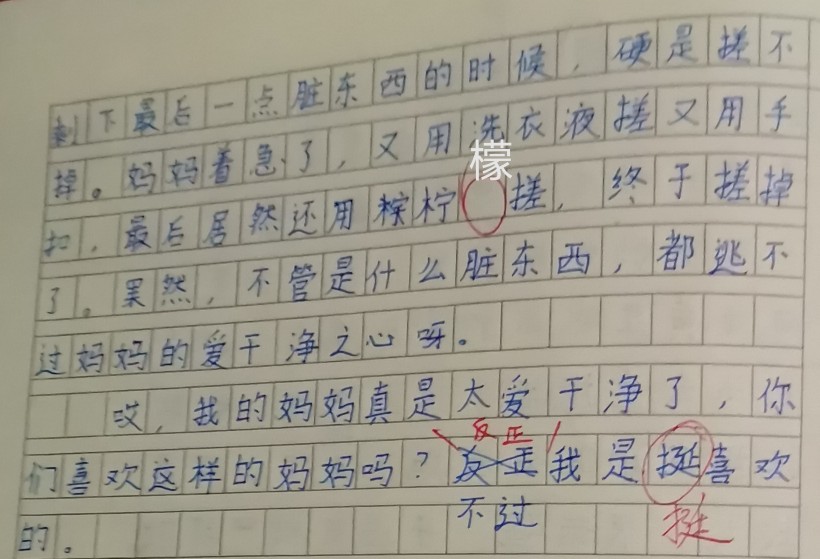 剩下最后一点脏东西的时候，硬是搓不
掉。妈妈着急了，又用洗衣液搓又用手
檬
扣，最后居然还用柠搓，终于搓掉
了。果然，不管是什么脏东西，都逃不
过妈妈的爱干净之心呀。
哎，我的妈妈真是太爱干净了，你
反正
们喜欢这样的妈妈吗？反正我是挺喜欢
不过
挺
的。